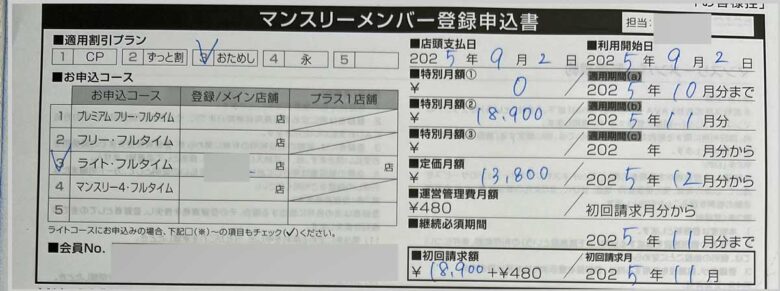 マンスリーメンバー登録申込書
担当:
■適用割引プラン
1 CP 2 ずっと割 3 おためし 4 永 5
■お申込コース
お申込コース 登録/メイン店舗 プラス1店舗
1 プレミアム フリー・フルタイム 店
2 フリー・フルタイム 店
3 ライト・フルタイム 店 店
4 マンスリー4・フルタイム 店
5
ライトコースにお申込みの場合、下記□(※)~の項目もチェック(✓)ください。
■会員No.
■店頭支払日 ■利用開始日
2025年9月2日 2025年9月2日
■特別月額① 適用期間(a)
¥ 0 / 2025年10月分まで
■特別月額② 適用期間(b)
¥ 18,900 / 2025年11月分
■特別月額③ 適用期間(c)
¥ / 202 年 月分から
■定価月額
¥ 13,800 / 2025年12月分から
■運営管理費月額
¥480 / 初回請求月分から
■継続必須期間
2025年11月分まで
■初回請求額 初回請求月
¥18,900+¥480 2025年11月